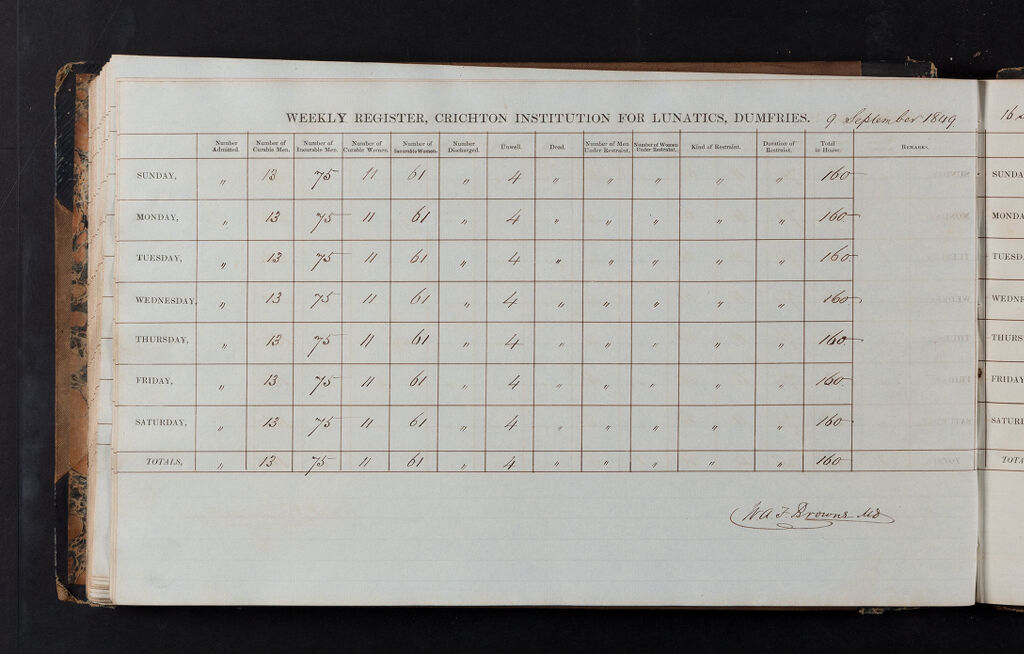 WEEKLY REGISTER, CRICHTON INSTITUTION FOR LUNATICS, DUMFRIES. 9 September 1849.
Number Admitted. Number of Curable Men. Number of Incurable Men. Number of Curable Women. Number of Incurable Women. Number Discharged. Unwell. Dead. Number of Men Under Restraint. Number of Women Under Restraint. Kind of Restraint. Duration of Restraint. Total in House. REMARKS.
SUNDAY, " 13 75 11 61 " 4 " " " " " 160
MONDAY, " 13 75 11 61 " 4 " " " " " 160
TUESDAY, " 13 75 11 61 " 4 " " " " " 160
WEDNESDAY, " 13 75 11 61 " 4 " " " " " 160
THURSDAY, " 13 75 11 61 " 4 " " " " " 160
FRIDAY, " 13 75 11 61 " 4 " " " " " 160
SATURDAY, " 13 75 11 61 " 4 " " " " " 160
TOTALS, " 13 75 11 61 " 4 " " " " " 160
W A. F. Browne MD
16
SUNDA
MONDA
TUESD
WEDNE
THURS
FRIDAY
SATURD
TOTA